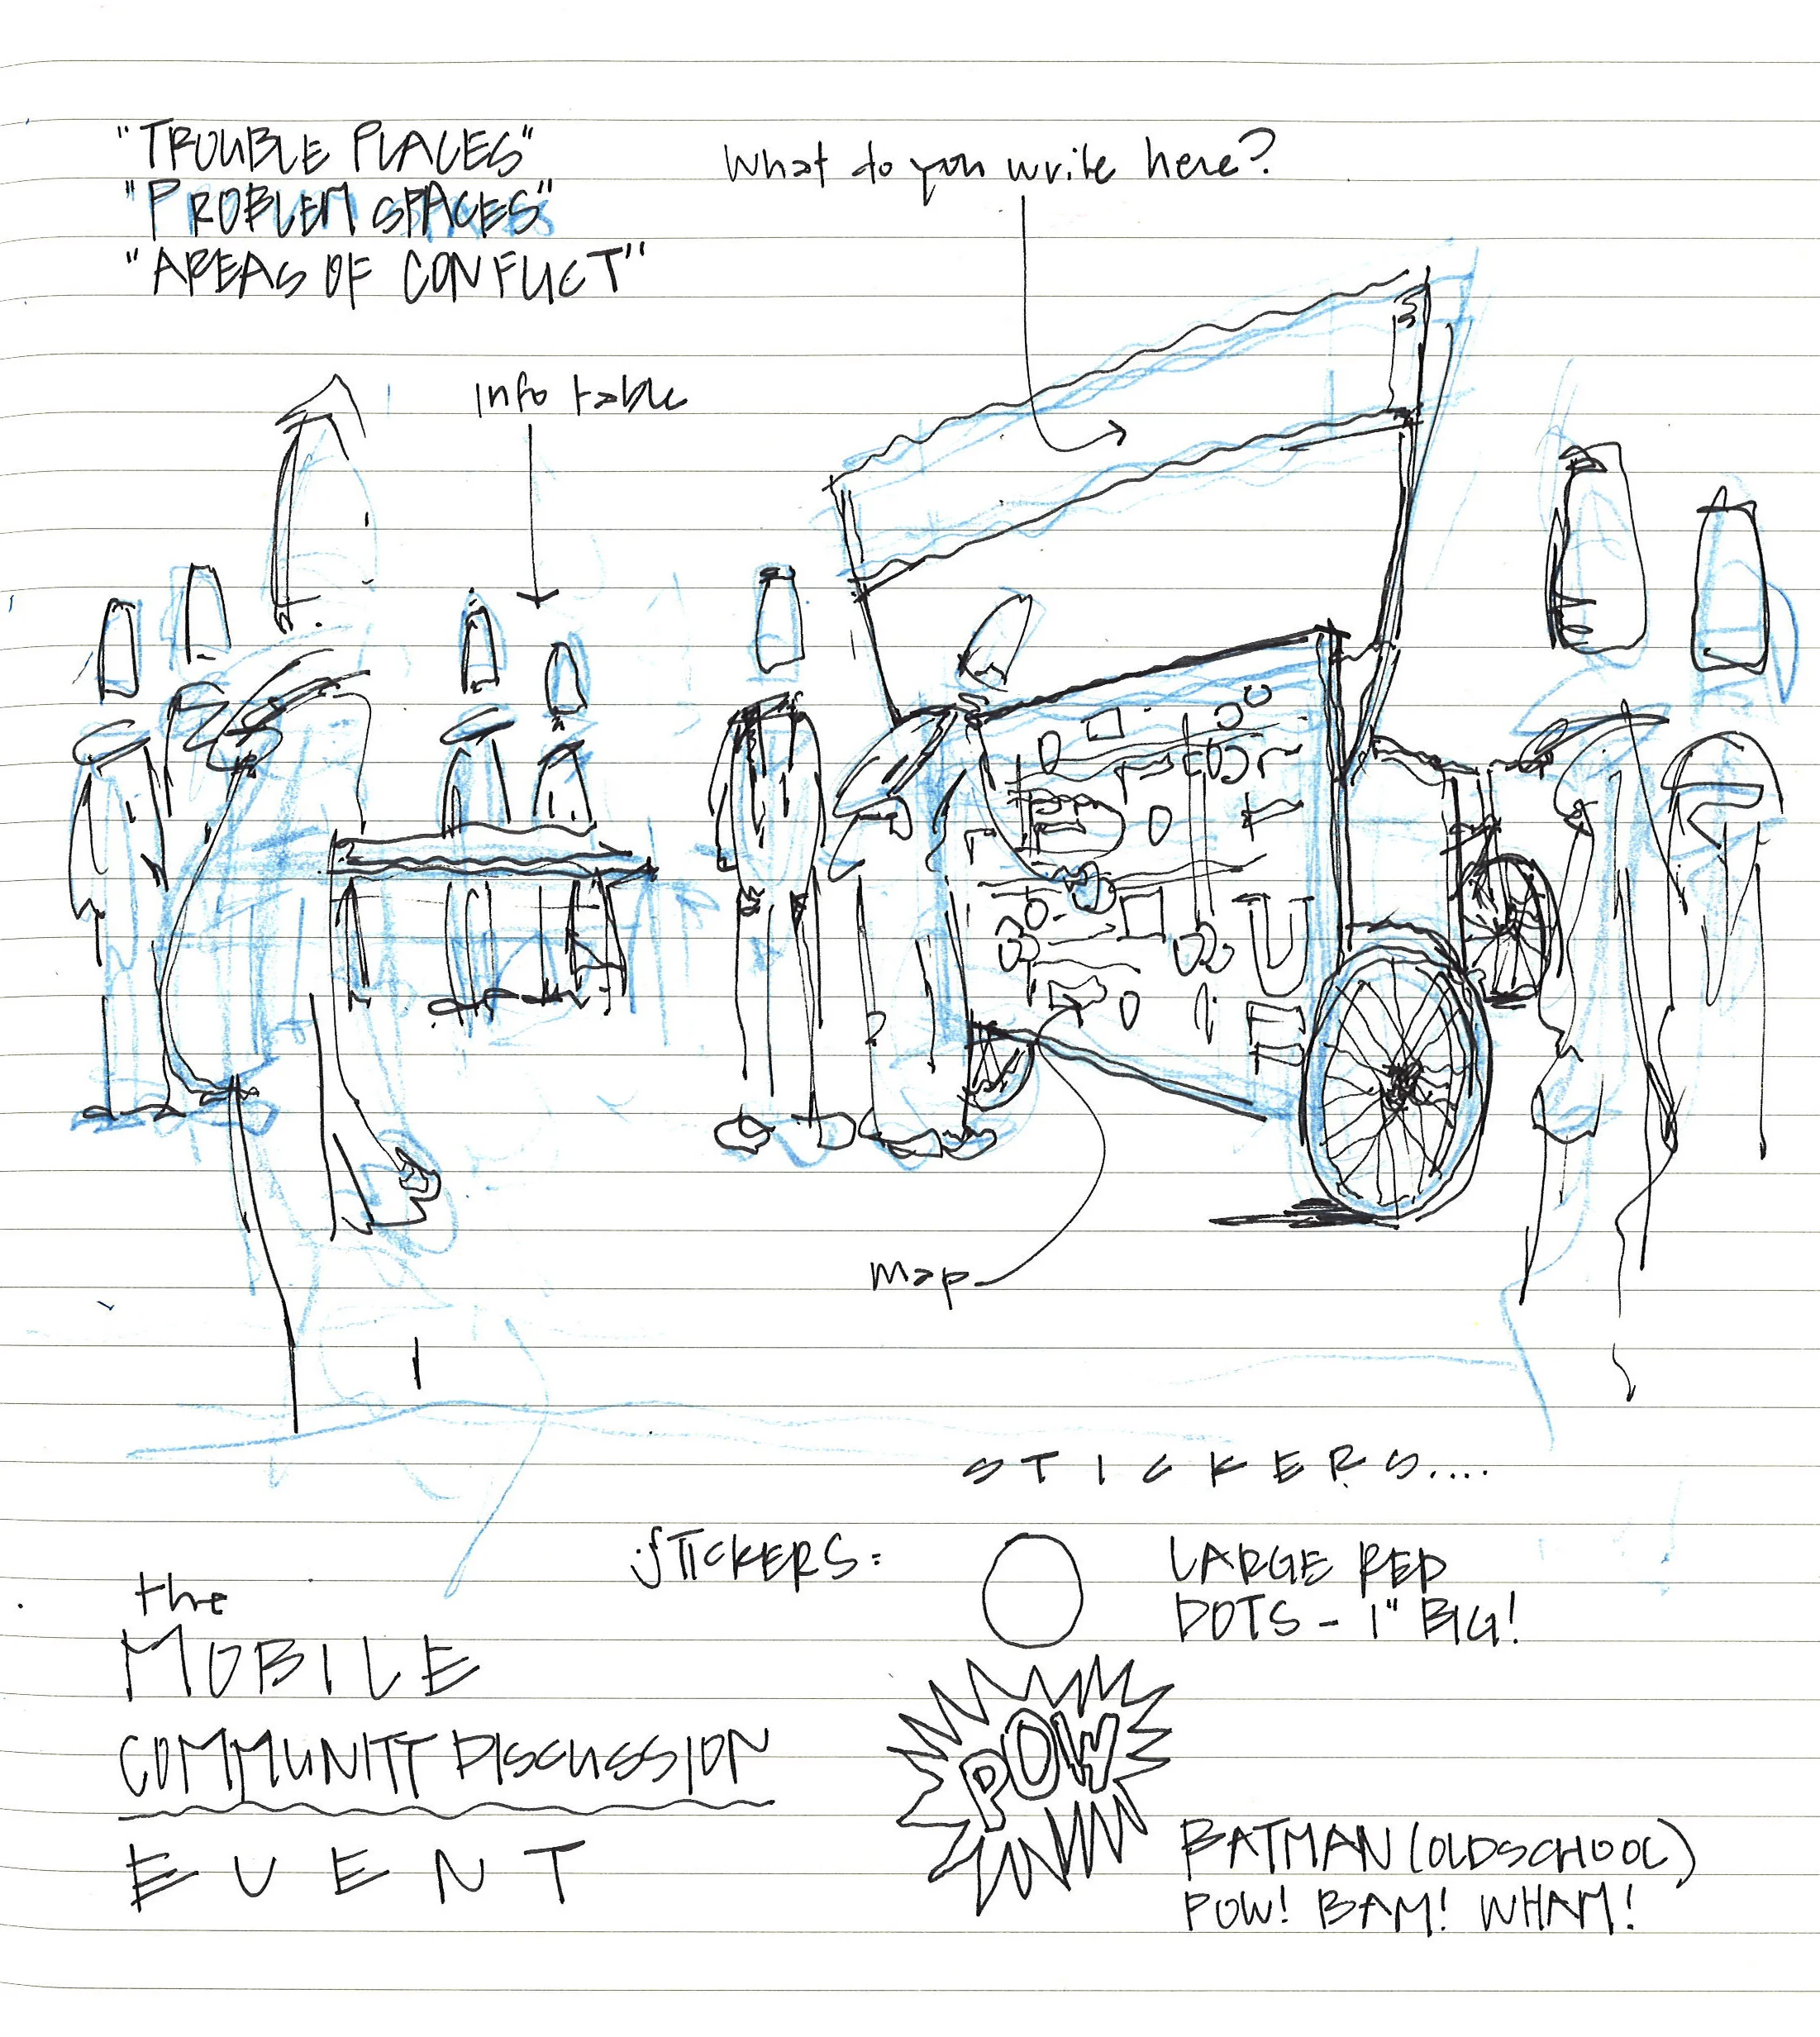 "TROUBLE PLACES"
"PROBLEM SPACES"
"AREAS OF CONFLICT"
What do you write here?
Info table
Map
STICKERS....
STICKERS:
LARGE RED
DOTS - 1" BIG!
the
MOBILE
COMMUNITY DISCUSSION
EVENT
POW
BATMAN (OLDSCHOOL)
POW! BAM! WHAM!